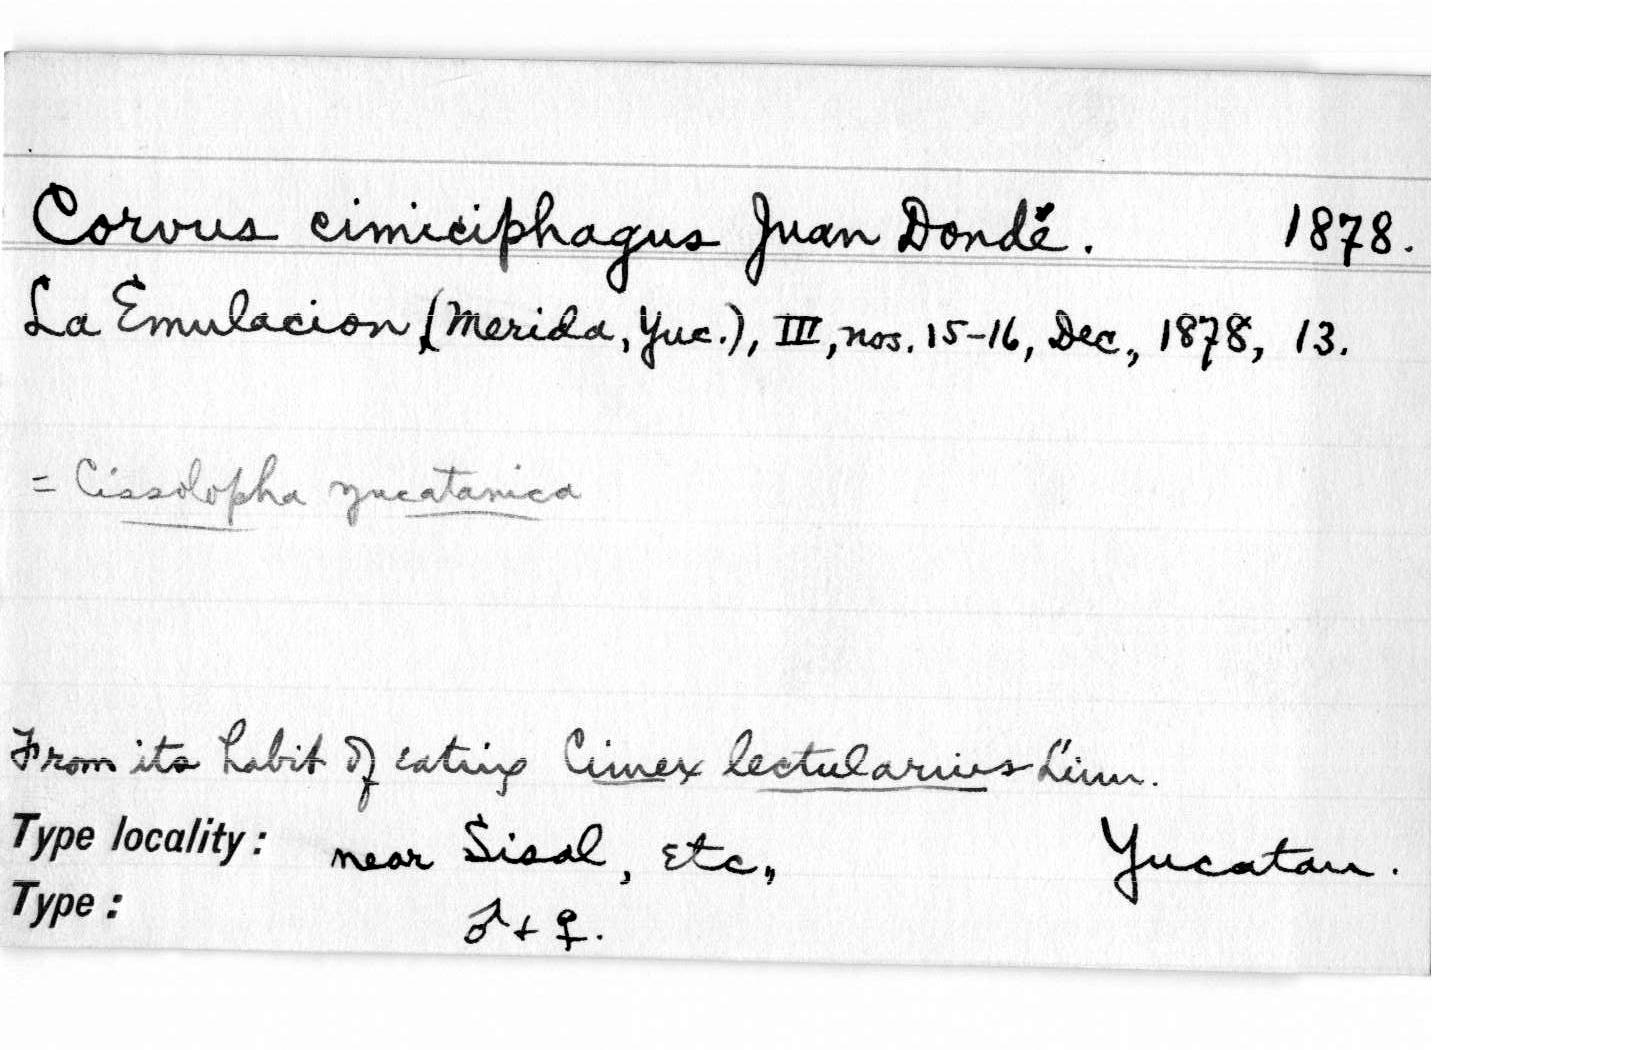 Corvus cimiciphagus Juan Dondé. 1878.
La Emulacion (Merida, Yuc.), III, nos. 15-16, Dec., 1878, 13.
= Cissolopha yucatanica
From its habit of eating Cimex lectularius Linn.
Type locality: near Sisal, etc., Yucatan.
Type: ♂ + ♀.